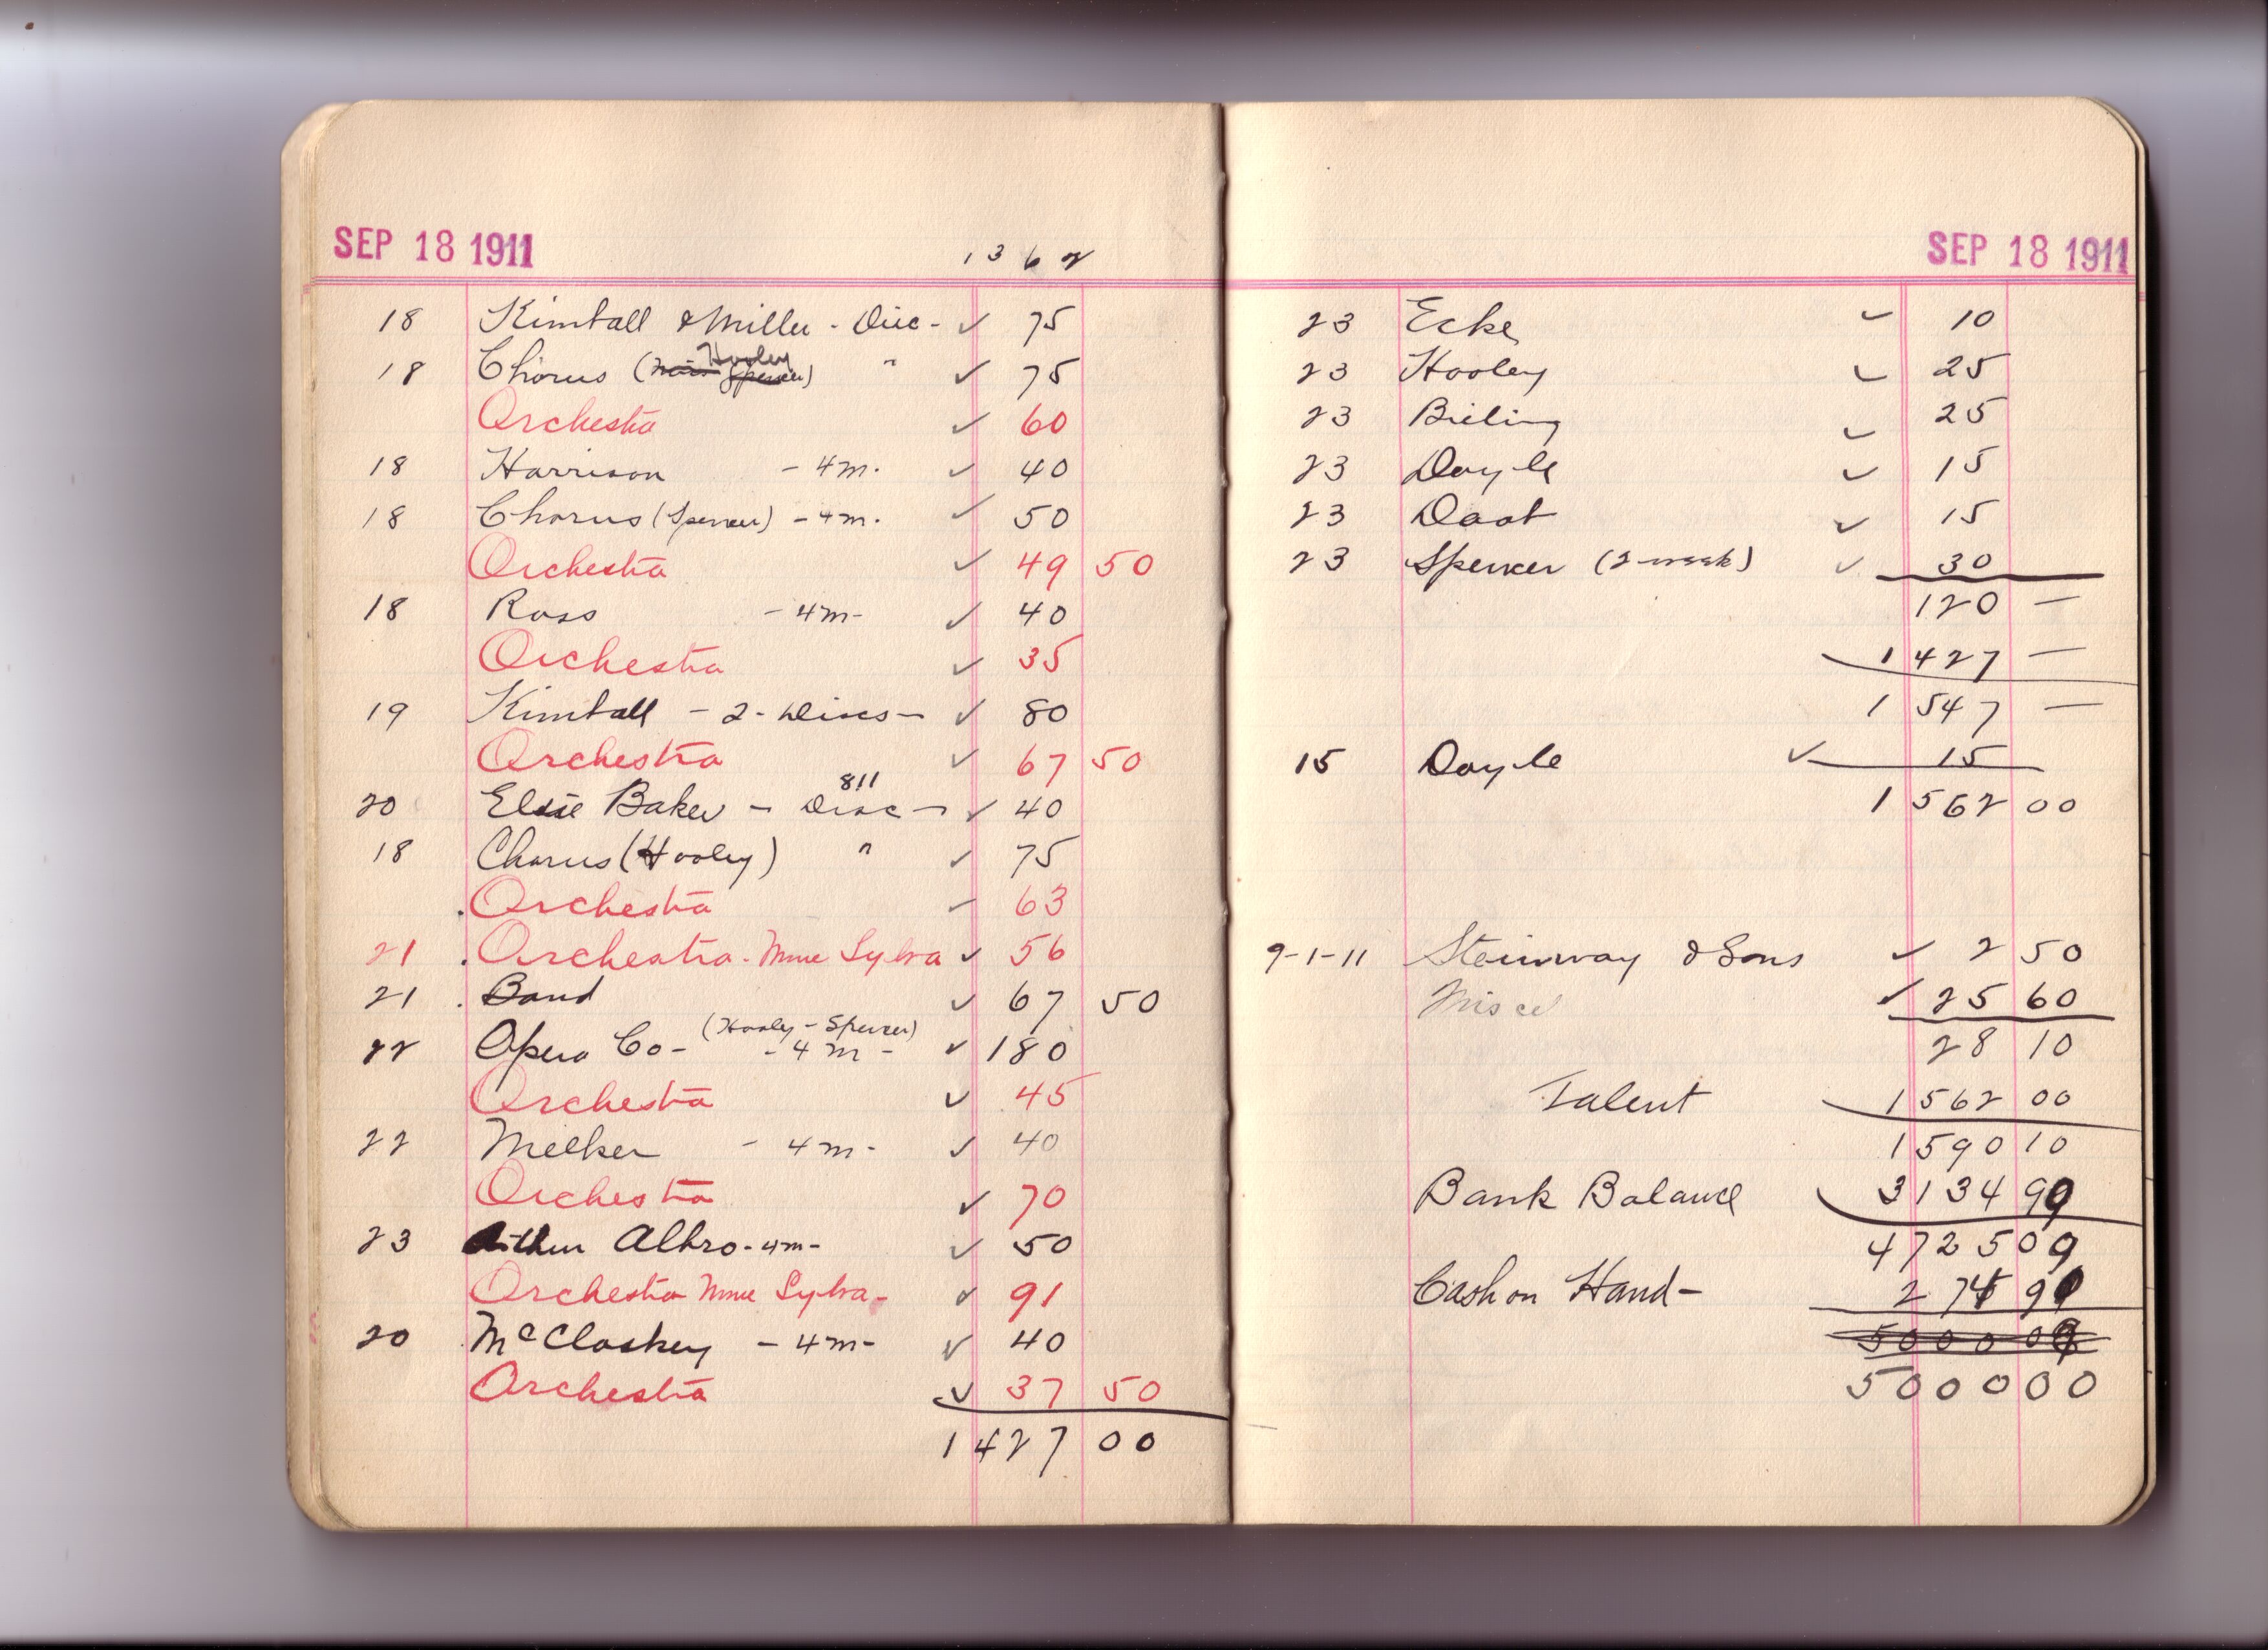 SEP 18 1911
1362
18 Kimball & Miller - Disc - ✓ 75
18 Chorus (Hooley Spencer) " ✓ 75
Orchestra ✓ 60
18 Harrison - 4m. ✓ 40
18 Chorus (Spencer) - 4m. ✓ 50
Orchestra ✓ 49 50
18 Ross - 4m - ✓ 40
Orchestra ✓ 35
19 Kimball - 2 - Discs - ✓ 80
Orchestra ✓ 67 50
811
20 Elsie Baker - Disc - ✓ 40
18 Chorus (Hooley) " ✓ 75
Orchestra ✓ 63
21 Orchestra - Mme Sylva ✓ 56
21 Band ✓ 67 50
(Hooley - Spencer)
22 Opera Co - - 4m - ✓ 180
Orchestra ✓ 45
22 Meeker - 4m - ✓ 40
Orchestra ✓ 70
23 Arthur Albro - 4m - ✓ 50
Orchestra Mme Sylva - ✓ 91
20 McCloskey - 4m - ✓ 40
Orchestra ✓ 37 50
1427 00
SEP 18 1911
23 Ecke ✓ 10
23 Hooley ✓ 25
23 Bieling ✓ 25
23 Doyle ✓ 15
23 Daab ✓ 15
23 Spencer (2-week) ✓ 30
120 —
1427 —
1547 —
15 Doyle ✓ 15
1562 00
9-1-11 Steinway & Sons ✓ 2 50
Misce ✓ 25 60
28 10
Talent 1562 00
1590 10
Bank Balance 3134 99
4725 09
Cash on Hand - 274 91
5000 00
5000 00